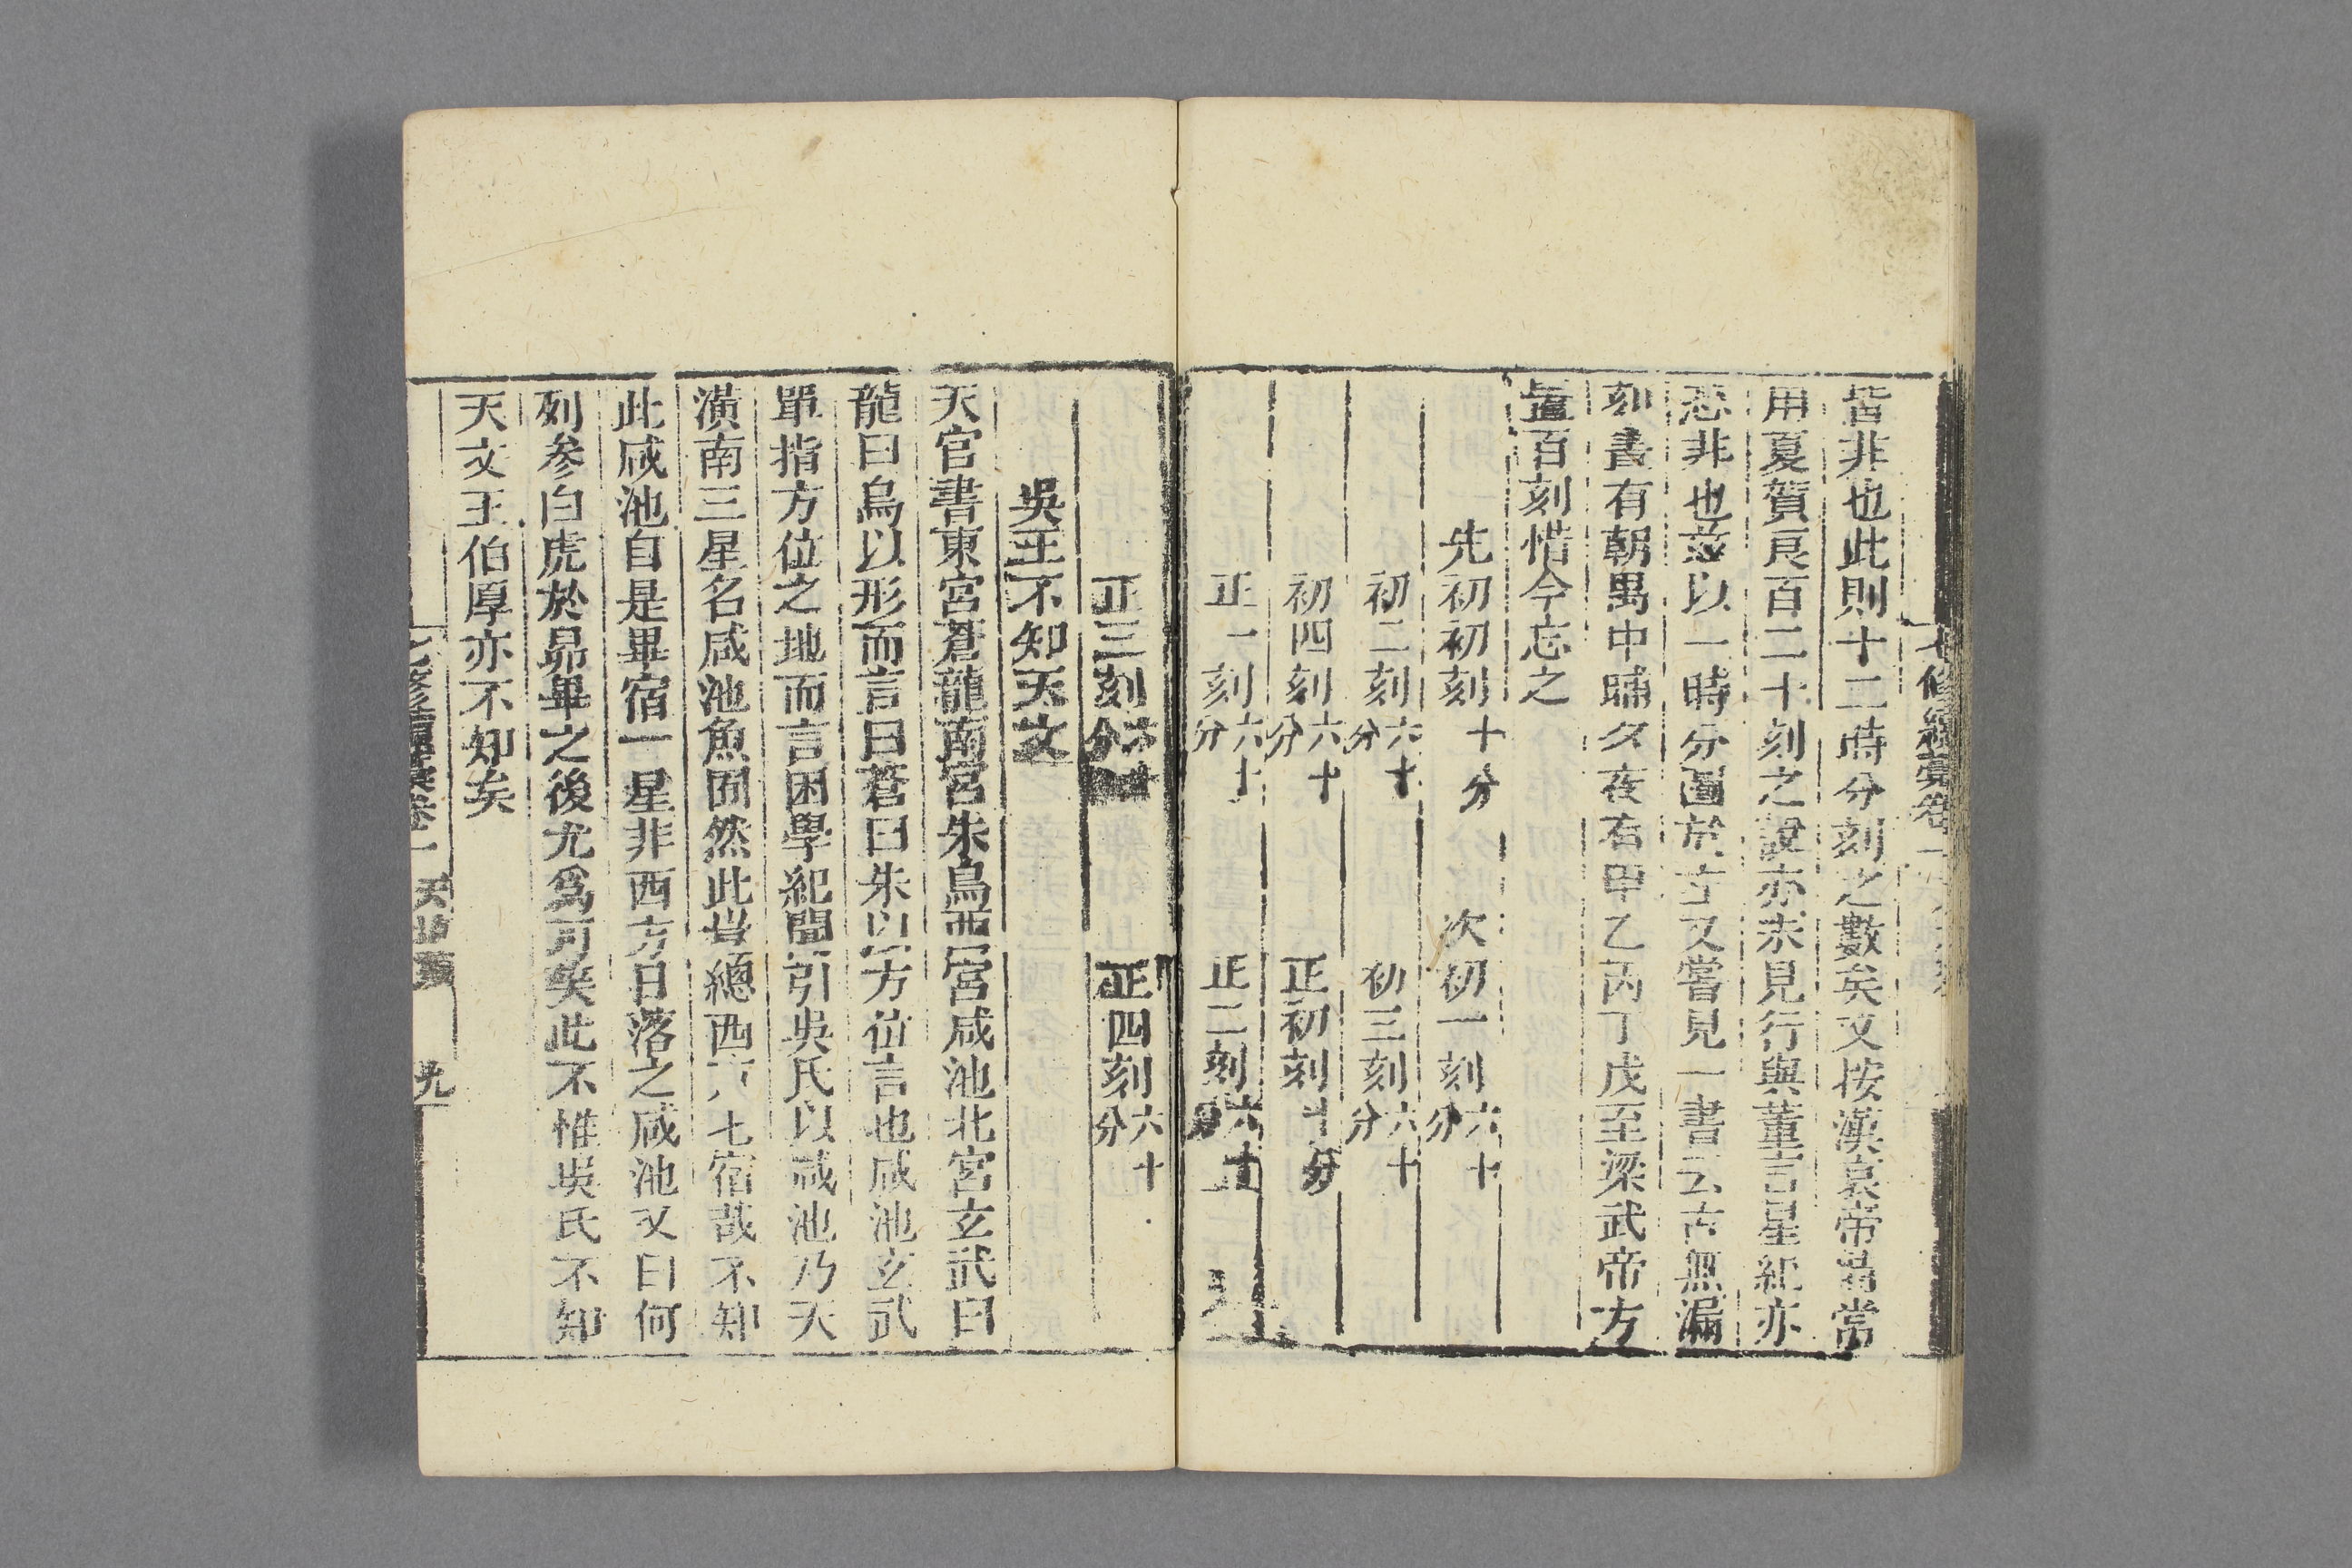 皆非也此則十二時分刻之數矣又按漢哀帝嘗常
用夏賀良百二十刻之說亦未見行與董言星紀亦
恐非也並以一時分圖於左又嘗見一書云古無漏
刻晝有朝禺中晡夕夜有甲乙丙丁戊至梁武帝方
置百刻惜今忘之
先初初刻十分 次初一刻六十分
初二刻六十分 初三刻六十分
初四刻六十分 正初刻十分
正一刻六十分 正二刻六十分
正三刻六十分 正四刻六十分
吳王不知天文
天官書東宮蒼龍南宮朱鳥西宮咸池北宮玄武曰
龍曰鳥以形而言曰蒼曰朱以方位言也咸池玄武
單指方位之地而言困學紀聞引吳氏以咸池乃天
潢南三星名咸池魚囿然此豈總西方七宿哉不知
此咸池自是畢宿一星非西方日落之咸池又曰何
列參白虎於昴畢之後尤爲可笑此不惟吳氏不知
天文王伯厚亦不知矣
七修續稾卷一 天地類 九